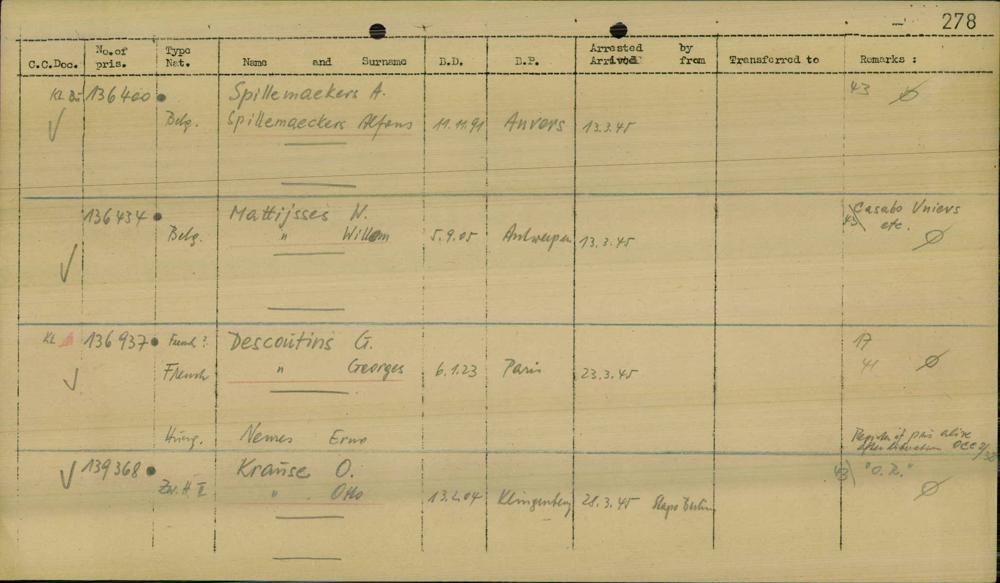 278
C.C.Doc. No.of pris. Type Nat. Name and Surname B.D. B.P. Arrested Arrived by from Transferred to Remarks :
136400 Spillemaekers A. 43
Belg. Spillemaeckers Alfons 11.11.91 Anvers 13.3.45
136434 Mattijsses W. Casabo Univers
Belg. " Willem 5.9.05 Antwerpen 13.3.45 43 etc.
KL 136937 French? Descoutins G. 17
French " Georges 6.1.23 Paris 23.3.45 41
Hung. Nemes Erno Register of pris alive
after liberation OCC 2/
139368 Krause O. 43 "O.R."
" Otto 13.2.04 Klingenberg 28.3.45 Stapo Berlin